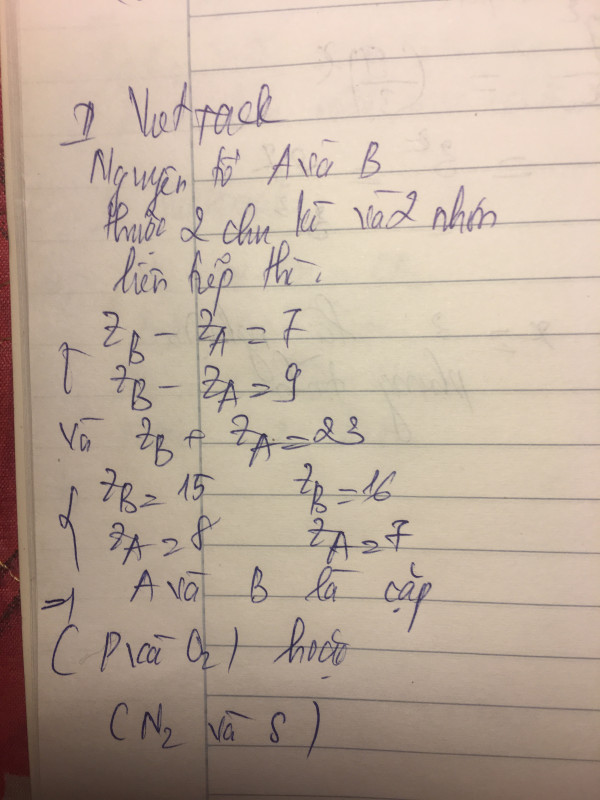 VietJack
Nguyên tố A và B
thuộc 2 chu kì và 2 nhóm
liên tiếp thì.
Z_B - Z_A = 7
Z_B - Z_A = 9
và Z_B + Z_A = 23
Z_B = 15 Z_B = 16
Z_A = 8 Z_A = 7
=> A và B là cặp
(P và O₂) hoặc
(N₂ và S)